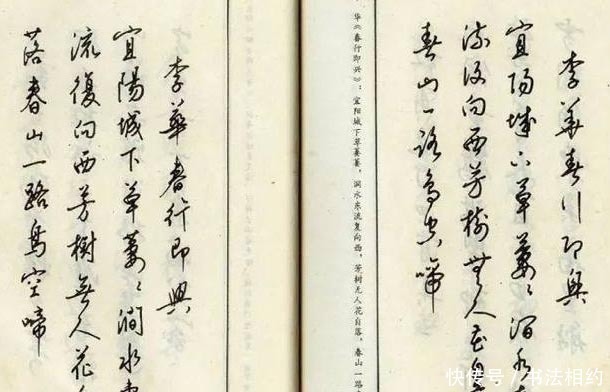 李華春行即興
宜陽城下草萋〻澗水
流復向西芳樹無人花自
春山一路鳥空啼
华《春行即兴》：宜阳城下草萋萋，涧水东流复向西。芳树无人花自落，春山一路
李華春行即興
宜陽城下草萋〻澗水東
流復向西芳樹無人花自
落春山一路鳥空啼
快传号/书法相约